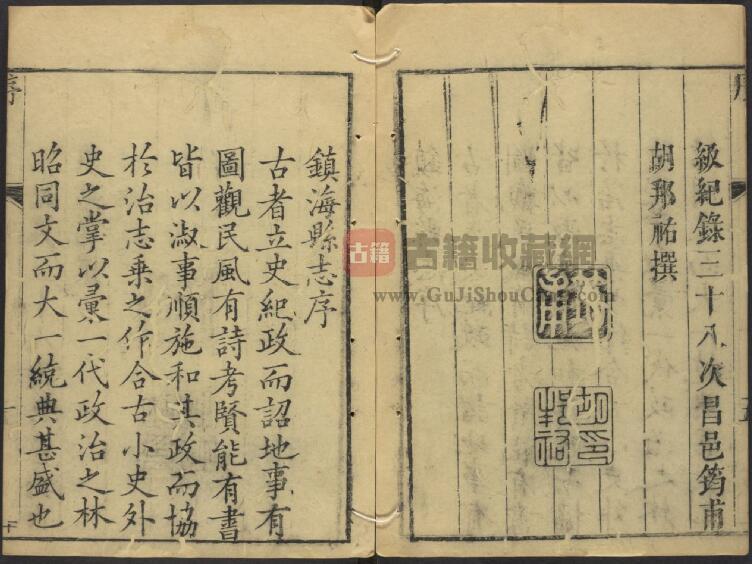 級紀錄三十八次昌邑筠甫
胡邦祐撰
胡邦祐印
鎮海縣志序
古者立史紀政而詔地事有
圖觀民風有詩考賢能有書
皆以淑事順施和其政而協
於治志乗之作合古小史外
史之掌以彚一代政治之林
昭同文而大一統典甚盛也
序
一
古籍
古籍收藏網
www.GuJiShouCang.com